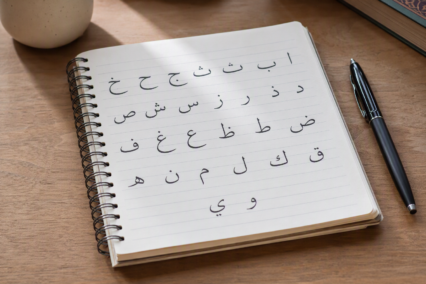 ا ب ث ث ج ح خ
د ذ ر ز س ش ص
ض ط ظ ع غ ف
ق ك ل م ن ه
و ي